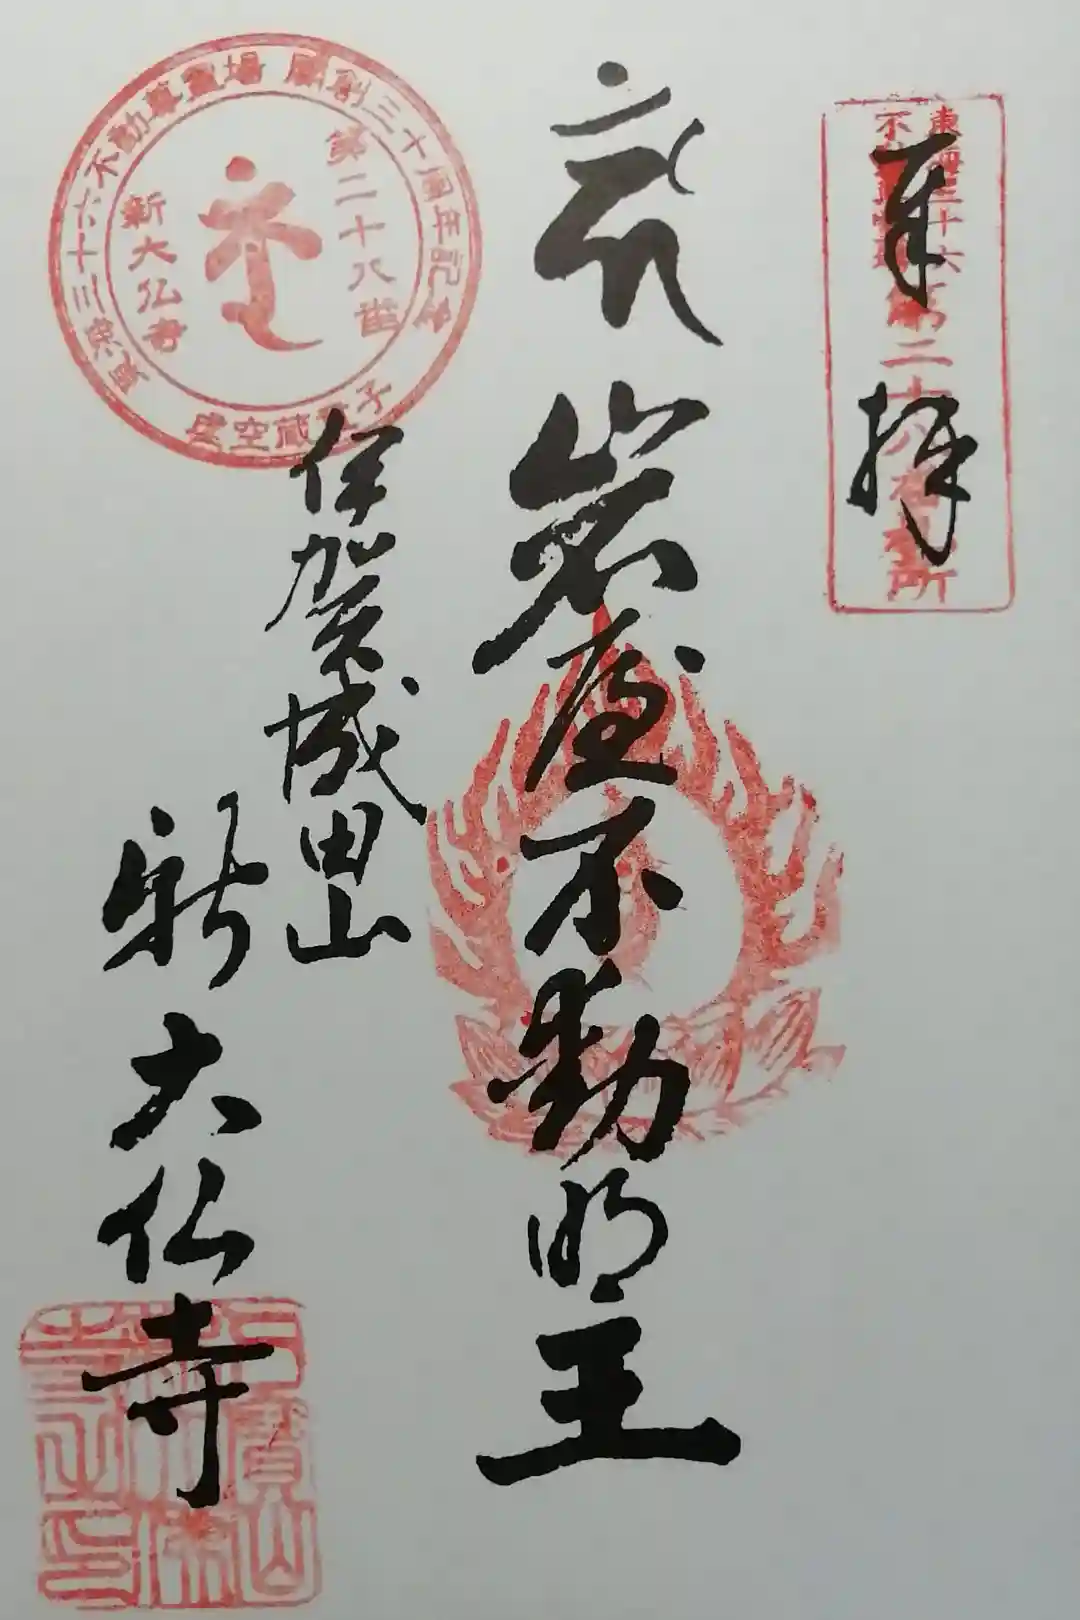 奉拝
東海三十六
不動尊霊場
第二十八番札所
岩屋不動明王
伊賀成田山
新大仏寺
東海三十六不動尊霊場 開創三十周年記念
第二十八番
新大仏寺
虚空蔵童子